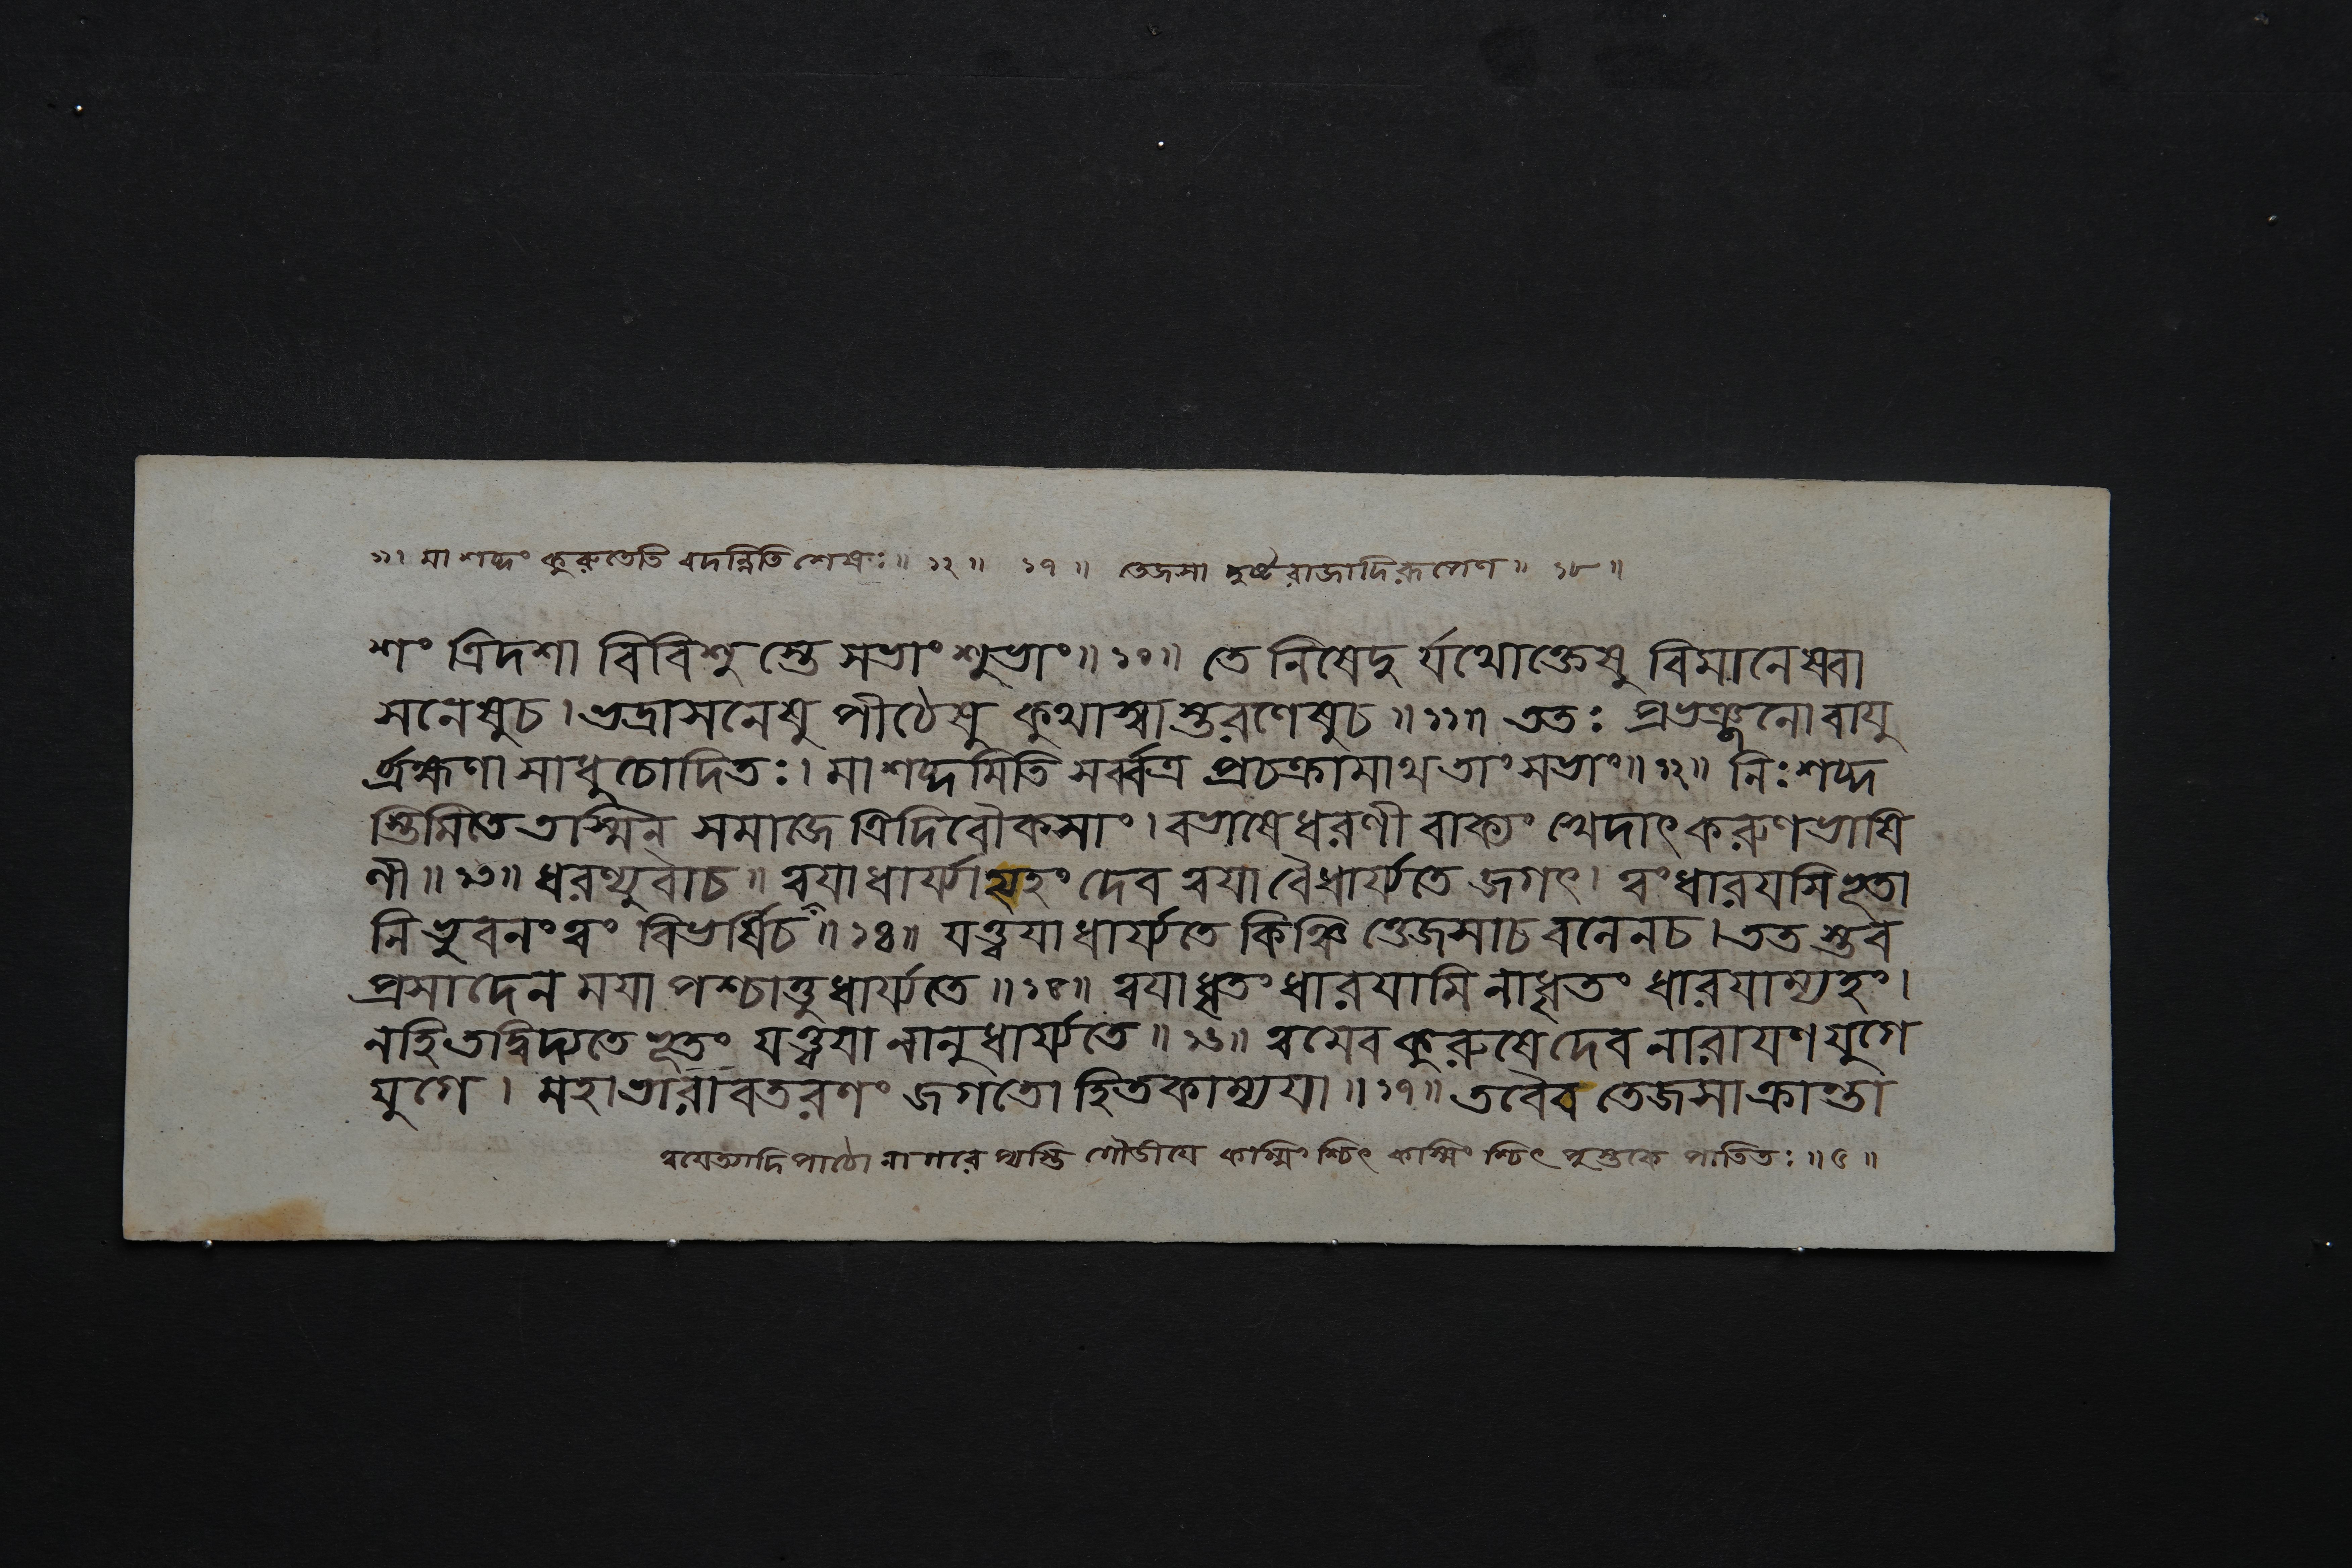 ১১। মা শব্দং কুরুতেতি বদন্নিতি শেষঃ॥ ১২॥ ১৭॥ তেজসা দুষ্টরাজাদিরূপেণ॥ ১৮॥
শং ত্রিদশা বিবিশুস্তে সভাং শুভাং॥ ১০॥ তে নিষেদুর্যথোক্তেষু বিমানেষ্বা
সনেষুচ। ভদ্রাসনেষু পীঠেষু কুথাস্বাস্তরণেষুচ॥ ১১॥ ততঃ প্রভঞ্জনো বায়ু
র্ব্রহ্মণা সাধু চোদিতঃ। মা শব্দমিতি সর্ব্বত্র প্রচক্রামাথ তাং সভাং॥ ১২॥ নিঃশব্দ
স্তিমিতে তস্মিন্ সমাজে ত্রিদিবৌকসাং। বভাষে ধরণী বাক্যং খেদাৎ করুণভাষি
ণী॥ ১৩॥ ধরণ্যুবাচ॥ ত্বয়া ধার্য্যাম্যহং দেব ত্বয়া বৈ ধার্য্যতে জগৎ। ত্বং ধারয়সি ভূতা
নি ভুবনং ত্বং বিভর্ষিচ॥ ১৪॥ যত্ত্বয়া ধার্য্যতে কিঞ্চিত্তেজসাচ বলেনচ। ততস্তব
প্রসাদেন ময়া পশ্চাত্তু ধার্য্যতে॥ ১৫॥ ত্বয়া ধৃতং ধারয়ামি নাধৃতং ধারয়াম্যহং।
নহি তদ্বিদ্যতে ভূতং যত্ত্বয়া নানুধার্য্যতে॥ ১৬॥ ত্বমেব কুরুষে দেব নারায়ণ যুগে
যুগে। মহাভারাবতরণং জগতো হিতকাম্যয়া॥ ১৭॥ তবৈব তেজসাক্রান্তা
ত্বমেত্যাদি পাঠো নাগরে প্যস্তি গৌড়ীয়ে কস্মিংশ্চিৎ কস্মিংশ্চিৎ পুস্তকে পাতিতঃ॥ ৫॥